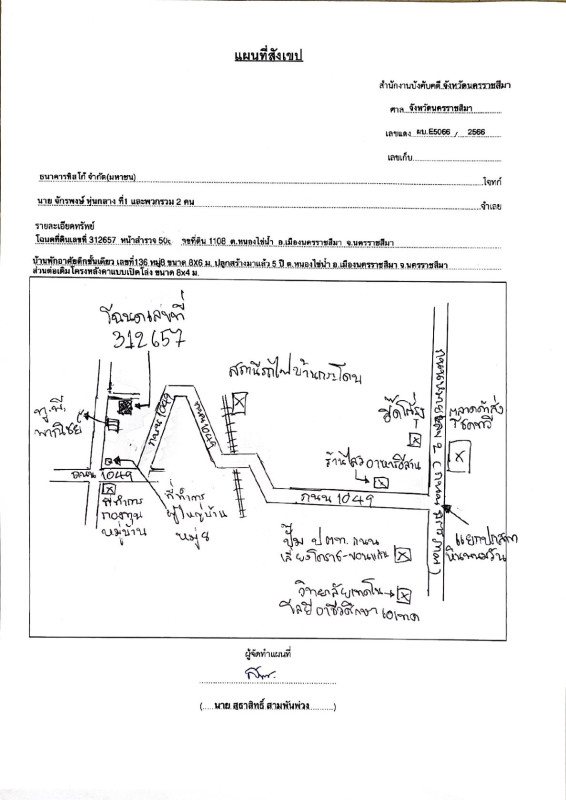 แผนที่สังเขป
สำนักงานบังคับคดี จังหวัดนครราชสีมา
ศาล จังหวัดนครราชสีมา
เลขแดง ผบ.E5066 / 2566
เลขเก็บ
ธนาคารทิสโก้ จำกัด(มหาชน) โจทก์
นาย จักรพงษ์ หุ่นกลาง ที่1 และพวกรวม 2 คน จำเลย
รายละเอียดทรัพย์
โฉนดที่ดินเลขที่ 312657 หน้าสำรวจ เลขที่ดิน 1108 ต.หนองไข่น้ำ อ.เมืองนครราชสีมา จ.นครราชสีมา
บ้านพักอาศัยตึกชั้นเดียว เลขที่136 หมู่8 ขนาด 8X6 ม. ปลูกสร้างมาแล้ว 5 ปี ต.หนองไข่น้ำ อ.เมืองนครราชสีมา จ.นครราชสีมา
ส่วนต่อเติมโครงหลังคาแบบเปิดโล่ง ขนาด 8x4 ม.
โฉนดเลขที่
312657
สถานีรถไฟบ้านกระโดน
ทู.พี.
พาณิชย์
ถนน 1049
ถนน 1049
ร้านไลวอาหารอีสาน
ตลาดค้าส่ง
ถนน 1049
ถนน 1049
ที่ทำการ
กองทุน
หมู่บ้าน
ที่ทำการ
ผู้ใหญ่บ้าน
หมู่ 8
ถนนมิตรภาพ
แยกปราสาท
หินพนมวัน
ปั๊ม ปตท. ถนน
เลี่ยงโคราช-ขอนแก่น
วิทยาลัยเทคโน
โลยีอาชีวศึกษา เอเทค
ผู้จัดทำแผนที่
(.....นาย สุธาสิทธิ์ สามพันพ่วง...........)